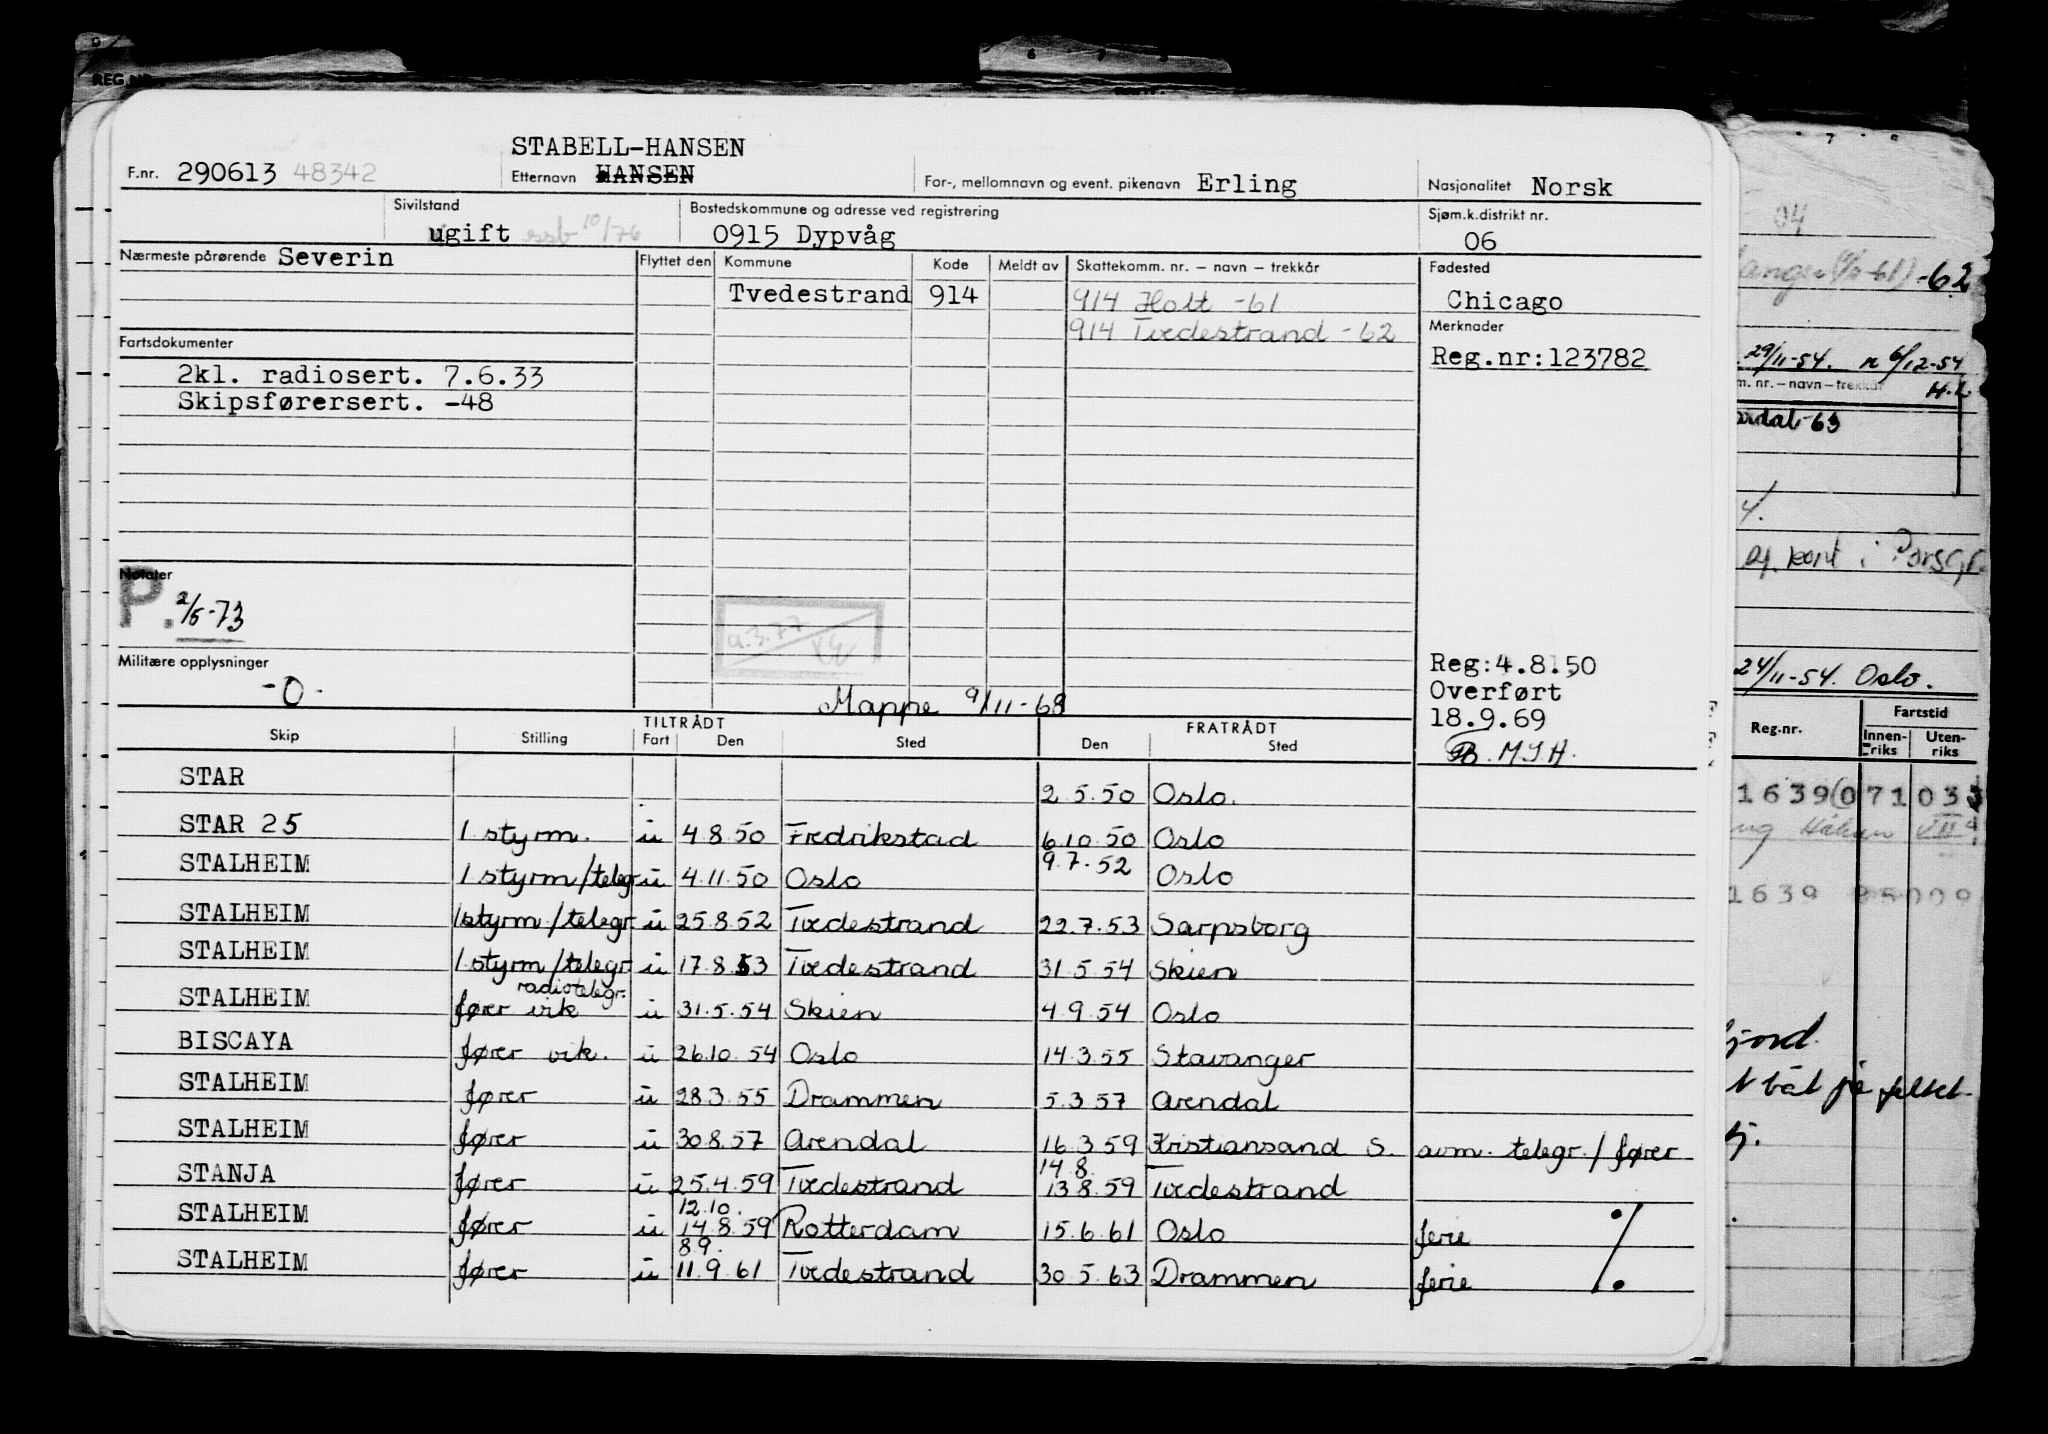 REG.NR.
STABELL-HANSEN
F.nr. 290613 48342 Etternavn HANSEN For-, mellomnavn og event. pikenavn Erling Nasjonalitet Norsk
Sivilstand Bostedskommune og adresse ved registrering Sjøm.k.distrikt nr.
ugift ssb 10/76 0915 Dypvåg 06
Nærmeste pårørende Severin Flyttet den Kommune Kode Meldt av Skattekomm. nr. – navn – trekkår Fødested
Tvedestrand 914 914 Holt -61 Chicago
914 Tvedestrand -62 Merknader
Fartsdokumenter Reg.nr:123782
2kl. radiosert. 7.6.33
Skipsførersert. -48
Notater
P. 2/5-73
Militære opplysninger Reg:4.8.50
-0- Overført
Mappe 9/11-68 18.9.69
TILTRÅDT FRATRÅDT
Skip Stilling Fart Den Sted Den Sted M.J.H.
STAR 2.5.50 Oslo.
STAR 25 1 styrm. u 4.8.50 Fredrikstad 6.10.50 Oslo
STALHEIM 1 styrm/telegr u 4.11.50 Oslo 9.7.52 Oslo
STALHEIM 1styrm/telegr. u 25.8.52 Tvedestrand 22.7.53 Sarpsborg
STALHEIM 1.styrm/telegr u 17.8.53 Tvedestrand 31.5.54 Skien
radiotelegr.
STALHEIM fører vik u 31.5.54 Skien 4.9.54 Oslo
BISCAYA fører vik. u 26.10.54 Oslo 14.3.55 Stavanger
STALHEIM fører u 28.3.55 Drammen 5.3.57 Arendal
STALHEIM fører u 30.8.57 Arendal 16.3.59 Kristiansand S. avm. telegr./fører
14.8.
STANJA fører u 25.4.59 Tvedestrand 13.8.59 Tvedestrand
12.10.
STALHEIM fører u 14.8.59 Rotterdam 15.6.61 Oslo ferie
8.9.
STALHEIM fører u 11.9.61 Tvedestrand 30.5.63 Drammen ferie
04
-62
29/11-54. n 6/12-54
m. nr. – navn – trekkår H.L
-63
kont i Porsgr.
24/11-54. Oslo.
Reg.nr. Fartstid
Innen-riks Uten-riks
1639 071033
Håkon VII
1639 85009
fjord.
båt på feltet